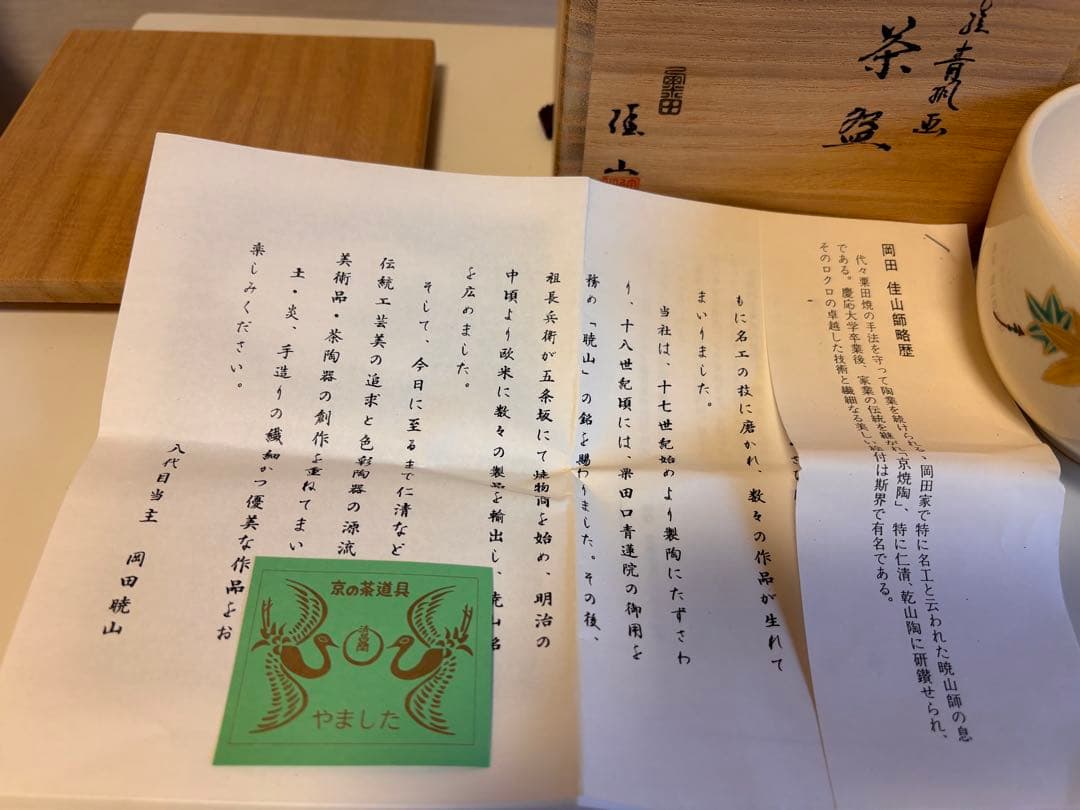 青楓画
茶盌
佳山
岡田 佳山師略歴
代々粟田焼の手法を守って陶業を続けられる、岡田家で特に名工と云われた暁山師の息
である。慶応大学卒業後、家業の伝統を継がれ「京焼陶」、特に仁清、乾山陶に研鑽せられ、
そのロクロの卓越した技術と繊細なる美しい絵付は斯界で有名である。
もに名工の技に磨かれ、数々の作品が生れて
まいりました。
当社は、十七世紀始めより製陶にたずさわ
り、十八世紀頃には、粟田口青蓮院の御用を
務め「暁山」の銘を賜わりました。その後、
祖長兵衛が五条坂にて焼物商を始め、明治の
中頃より欧米に数々の製品を輸出し、暁山銘
を広めました。
そして、今日に至るまで仁清など
伝統工芸美の追求と色彩陶器の源流
美術品・茶陶器の創作を重ねてまい
土・炎、手造りの繊細かつ優美な作品をお
楽しみください。
八代目当主 岡田暁山
京の茶道具
やました